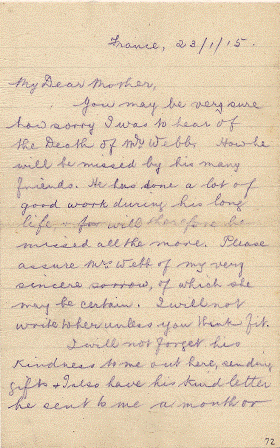 France, 23/1/15.
My Dear Mother,
You may be very sure
how sorry I was to hear of
the Death of Mr Webb. How he
will be missed by his many
friends. He has done a lot of
good work during his long
life & for will therefore be
missed all the more. Please
assure Mrs Webb of my very
sincere sorrow, of which she
may be certain. I will not
write to her unless you think fit.
I will not forget his
kindness to me out here, sending
gifts & I also have his kind letter
he sent to me a month or
72